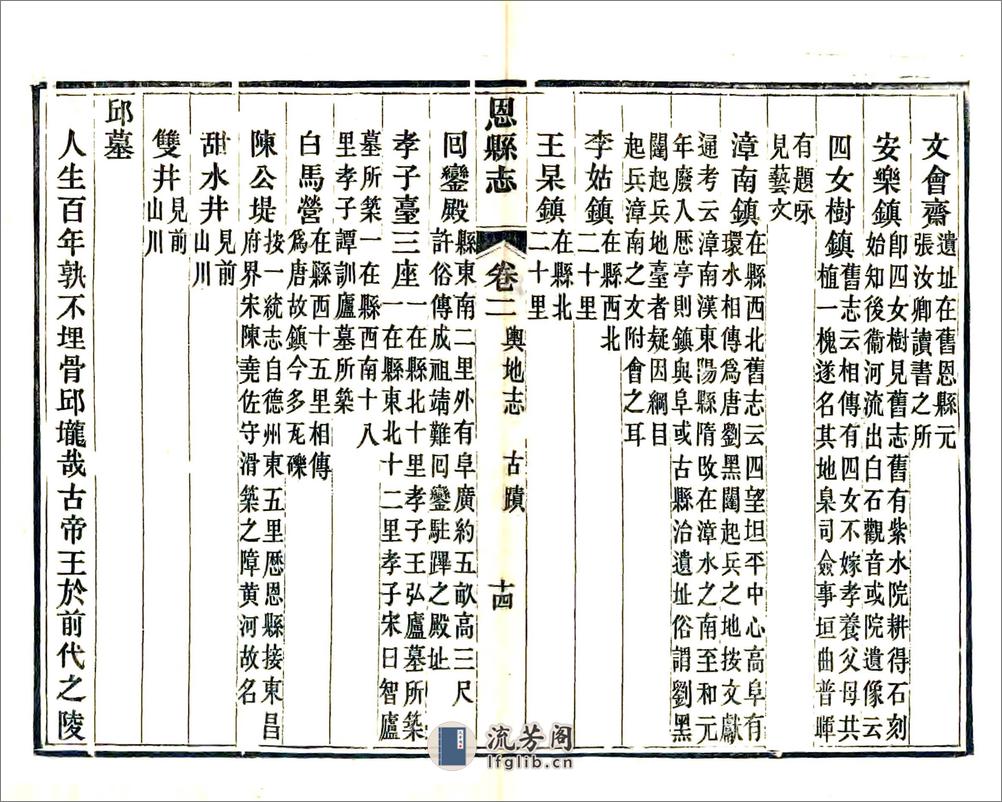 文會齋遺址在舊恩縣元
張汝卿讀書之所
安樂鎮卽四女樹見舊志舊有紫水院耕得石刻
始知後衞河流出白石觀音或院遺像云
四女樹鎮舊志云相傳有四女不嫁孝養父母共
植一槐遂名其地臬司僉事垣曲普暉
有題咏
見藝文
漳南鎮在縣西北舊志云四望坦平中心高阜有
環水相傳爲唐劉黑闥起兵之地按文獻
通考云漳南漢東陽縣隋攺在漳水之南至和元
年廢入歷亭則鎮與阜或古縣治遺址俗謂劉黑
闥起兵地臺者疑因綱目
起兵漳南之文附會之耳
李姑鎮在縣西北
二十里
王杲鎮在縣北
二十里
恩縣志 卷二 輿地志 古蹟 十四
囘鑾殿縣東南二里外有阜廣約五畝高三尺
許俗傳成祖靖難囘鑾駐蹕之殿址
孝子臺三座一在縣北十里孝子王弘廬墓所築
一在縣東北十二里孝子宋日智廬
墓所築一在縣西南十八
里孝子譚訓廬墓所築
白馬營在縣西十五里相傳
爲唐故鎮今多瓦礫
陳公堤按一統志自德州東五里歷恩縣接東昌
府界宋陳堯佐守滑築之障黃河故名
甜水井見前
山川
雙井見前
山川
邱墓
人生百年孰不埋骨邱壠哉古帝王於前代之陵
流芳阁
lfglib.cn